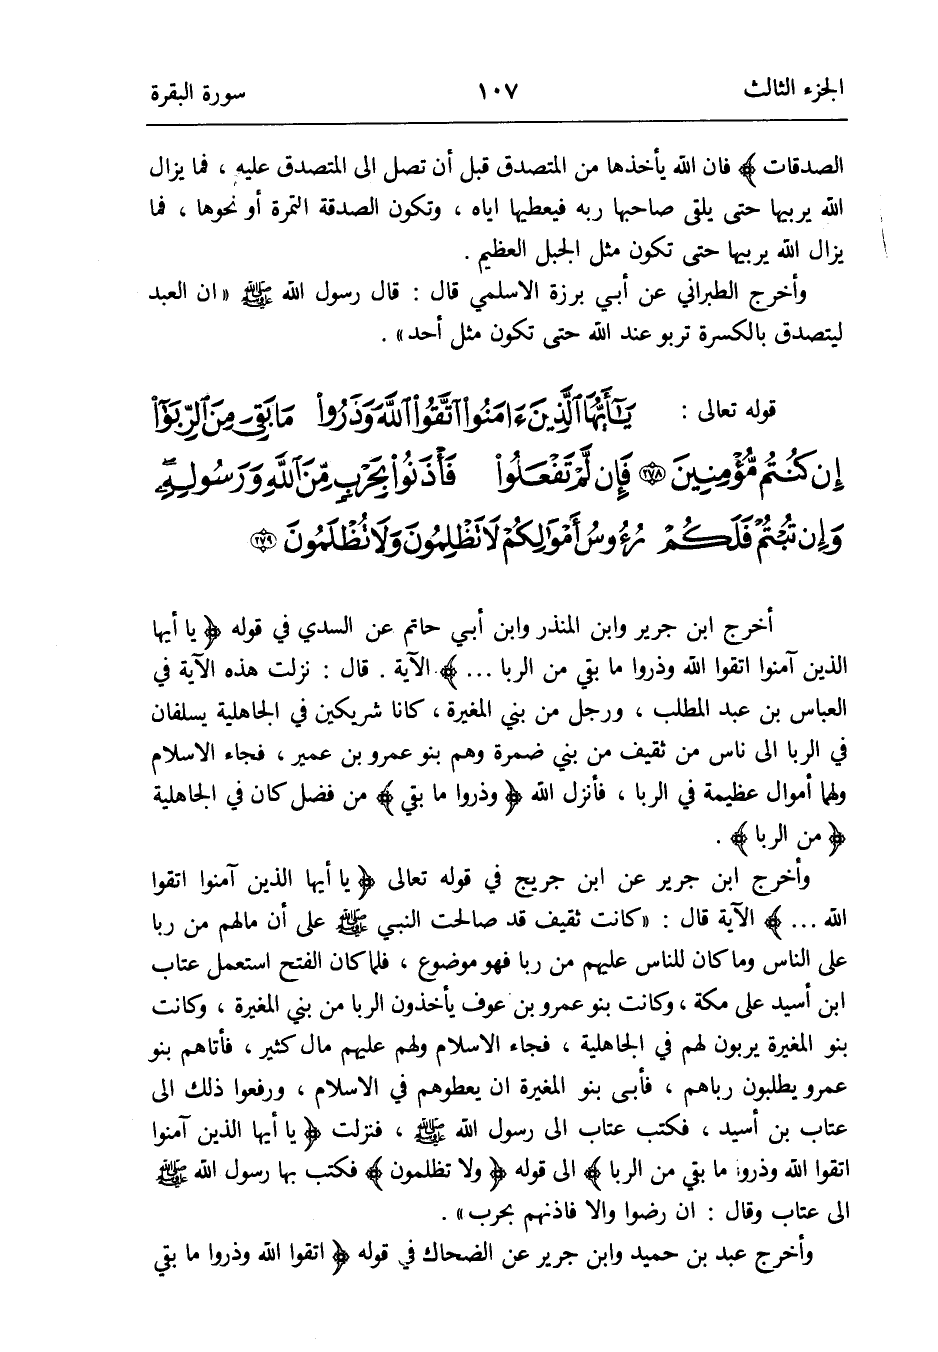 الجزء الثالث ١٠٧ سورة البقرة
الصدقات ﴾ فان الله يأخذها من المتصدق قبل أن تصل الى المتصدق عليه ، فما يزال
الله يربيها حتى يلقى صاحبها ربه فيعطيها اياه ، وتكون الصدقة التمرة أو نحوها ، فما
يزال الله يربيها حتى تكون مثل الجبل العظيم .
وأخرج الطبراني عن أبي برزة الاسلمي قال : قال رسول الله ﷺ « ان العبد
ليتصدق بالكسرة تربو عند الله حتى تكون مثل أحد » .
قوله تعالى : يَٰٓأَيُّهَا ٱلَّذِينَ ءَامَنُوا۟ ٱتَّقُوا۟ ٱللَّهَ وَذَرُوا۟ مَا بَقِىَ مِنَ ٱلرِّبَوٰٓا۟
إِن كُنتُم مُّؤْمِنِينَ ﴿٢٧٨﴾ فَإِن لَّمْ تَفْعَلُوا۟ فَأْذَنُوا۟ بِحَرْبٍ مِّنَ ٱللَّهِ وَرَسُولِهِۦ
وَإِن تُبْتُمْ فَلَكُمْ رُءُوسُ أَمْوَٰلِكُمْ لَا تَظْلِمُونَ وَلَا تُظْلَمُونَ ﴿٢٧٩﴾
أخرج ابن جرير وابن المنذر وابن أبي حاتم عن السدي في قوله ﴿ يا أيها
الذين آمنوا اتقوا الله وذروا ما بقي من الربا ... ﴾ الآية . قال : نزلت هذه الآية في
العباس بن عبد المطلب ، ورجل من بني المغيرة ، كانا شريكين في الجاهلية يسلفان
في الربا الى ناس من ثقيف من بني ضمرة وهم بنو عمرو بن عمير ، فجاء الاسلام
ولهما أموال عظيمة في الربا ، فأنزل الله ﴿ وذروا ما بقي ﴾ من فضل كان في الجاهلية
﴿ من الربا ﴾ .
وأخرج ابن جرير عن ابن جريج في قوله تعالى ﴿ يا أيها الذين آمنوا اتقوا
الله ... ﴾ الآية قال : « كانت ثقيف قد صالحت النبي ﷺ على أن مالهم من ربا
على الناس وما كان للناس عليهم من ربا فهو موضوع ، فلما كان الفتح استعمل عتاب
ابن أسيد على مكة ، وكانت بنو عمرو بن عوف يأخذون الربا من بني المغيرة ، وكانت
بنو المغيرة يربون لهم في الجاهلية ، فجاء الاسلام ولهم عليهم مال كثير ، فأتاهم بنو
عمرو يطلبون رباهم ، فأبى بنو المغيرة ان يعطوهم في الاسلام ، ورفعوا ذلك الى
عتاب بن أسيد ، فكتب عتاب الى رسول الله ﷺ ، فنزلت ﴿ يا أيها الذين آمنوا
اتقوا الله وذروا ما بقي من الربا ﴾ الى قوله ﴿ ولا تظلمون ﴾ فكتب بها رسول الله ﷺ
الى عتاب وقال : ان رضوا والا فاذنهم بحرب » .
وأخرج عبد بن حميد وابن جرير عن الضحاك في قوله ﴿ اتقوا الله وذروا ما بقي